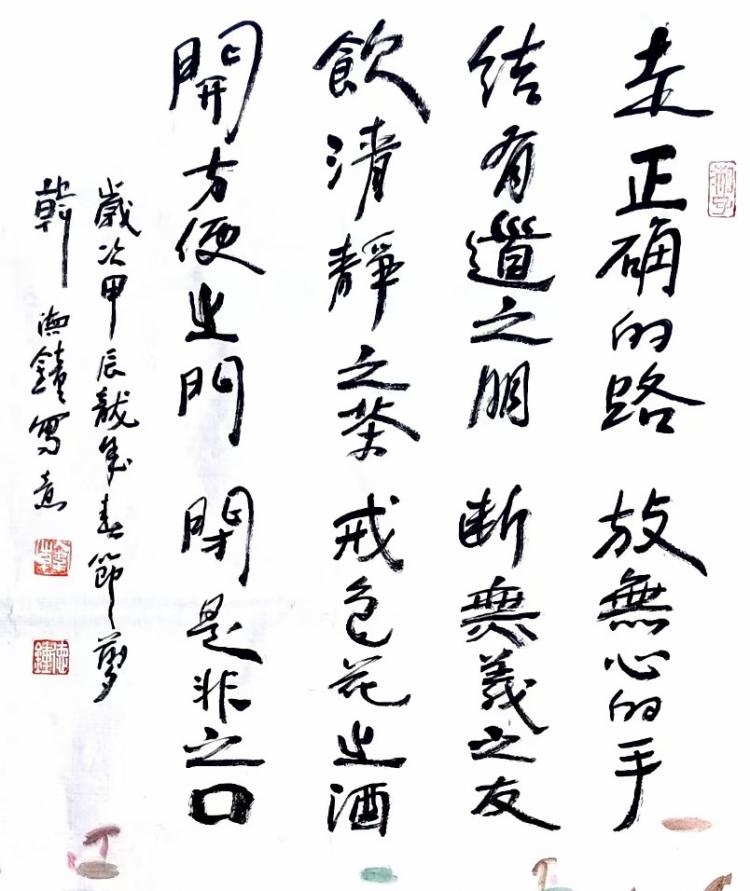 走正确的路 放無心的手
结有道之朋 断無義之友
飲清靜之茶 戒色花之酒
開方便之門 閉是非之口
歲次甲辰龍年春節
韓德鐘寫意